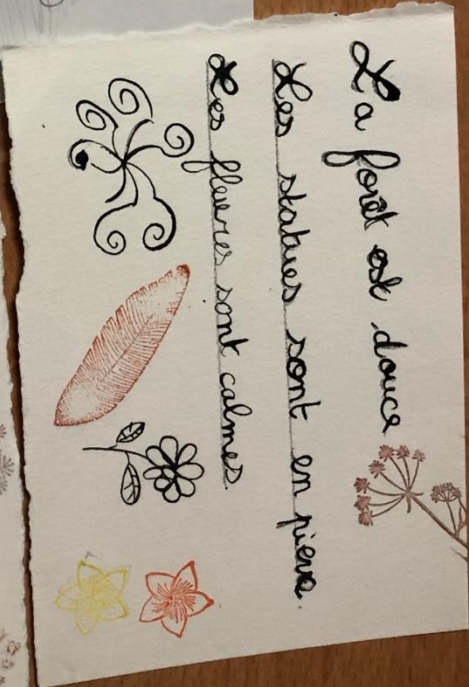 La forêt est douce
Les statues sont en pière.
Les fleures sont calmes.